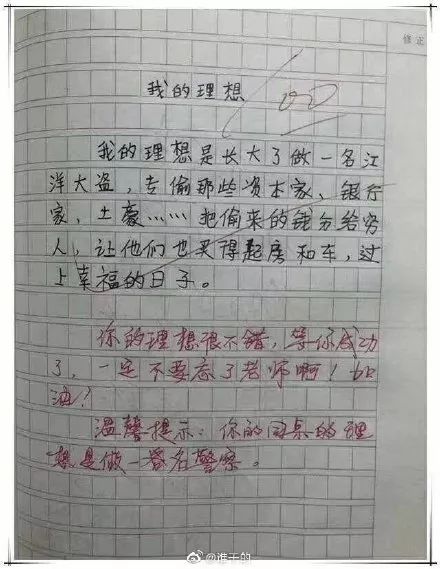 修正
我的理想
我的理想是长大了做一名江
洋大盗，专偷那些资本家、银行
家、土豪……把偷来的钱分给穷
人，让他们也买得起房和车，过
上幸福的日子。
你的理想很不错，等你成功
了，一定不要忘了老师啊！加
油！
温馨提示：你的同桌的理
想是做一名警察。
@谁干的